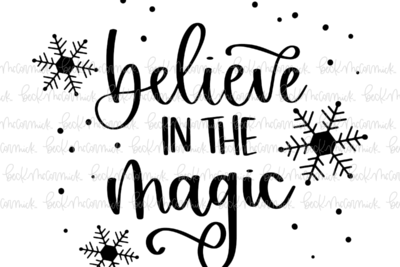 believe
IN THE
magic